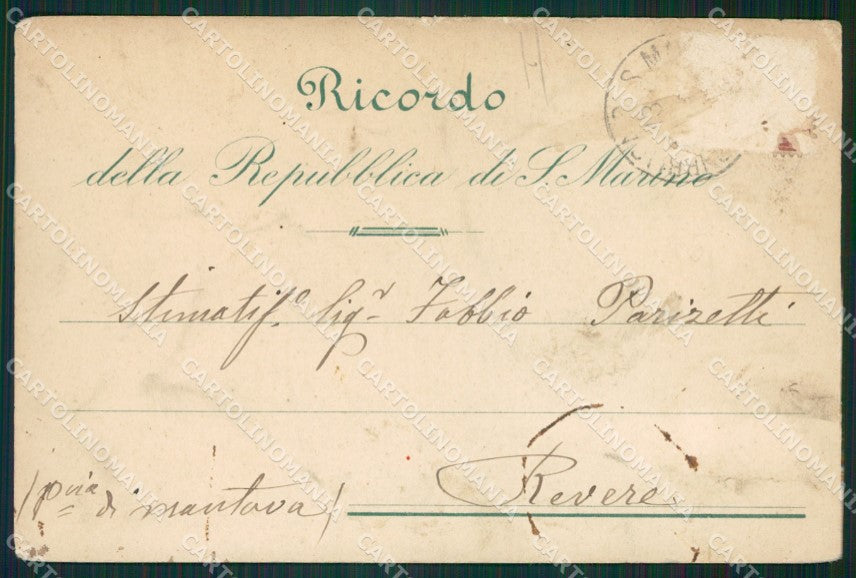 Ricordo
della Repubblica di S. Marino
Stimatis.º Sig.r Fabbio Parizetti
Revere
(p.via di mantova)
CARTOLINOMANIA